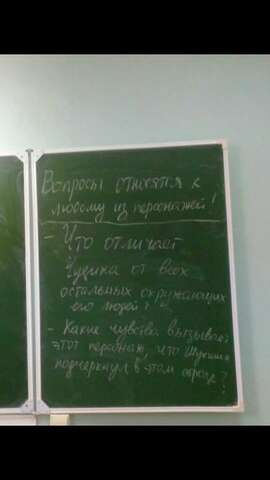 Вопросы относятся к
любому из персонажей!
- Что отличает
Чудика от всех
остальных окружающих
его людей?
- Какие чувства вызывает
этот персонаж, что Шукшин
подчеркнул в этом образе?